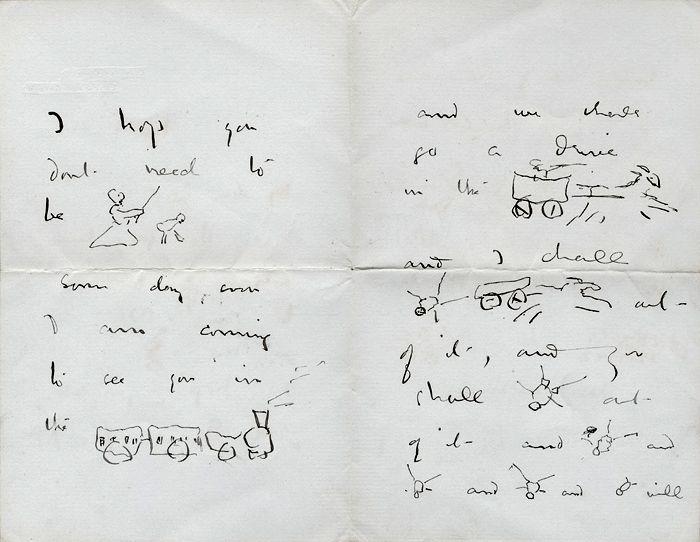 I hope you
dont need to
be
Some day soon
I am coming
to see you in
the
and we shall
go a drive
in the
and I shall
out
of it, and you
shall out
of it and and
and and will